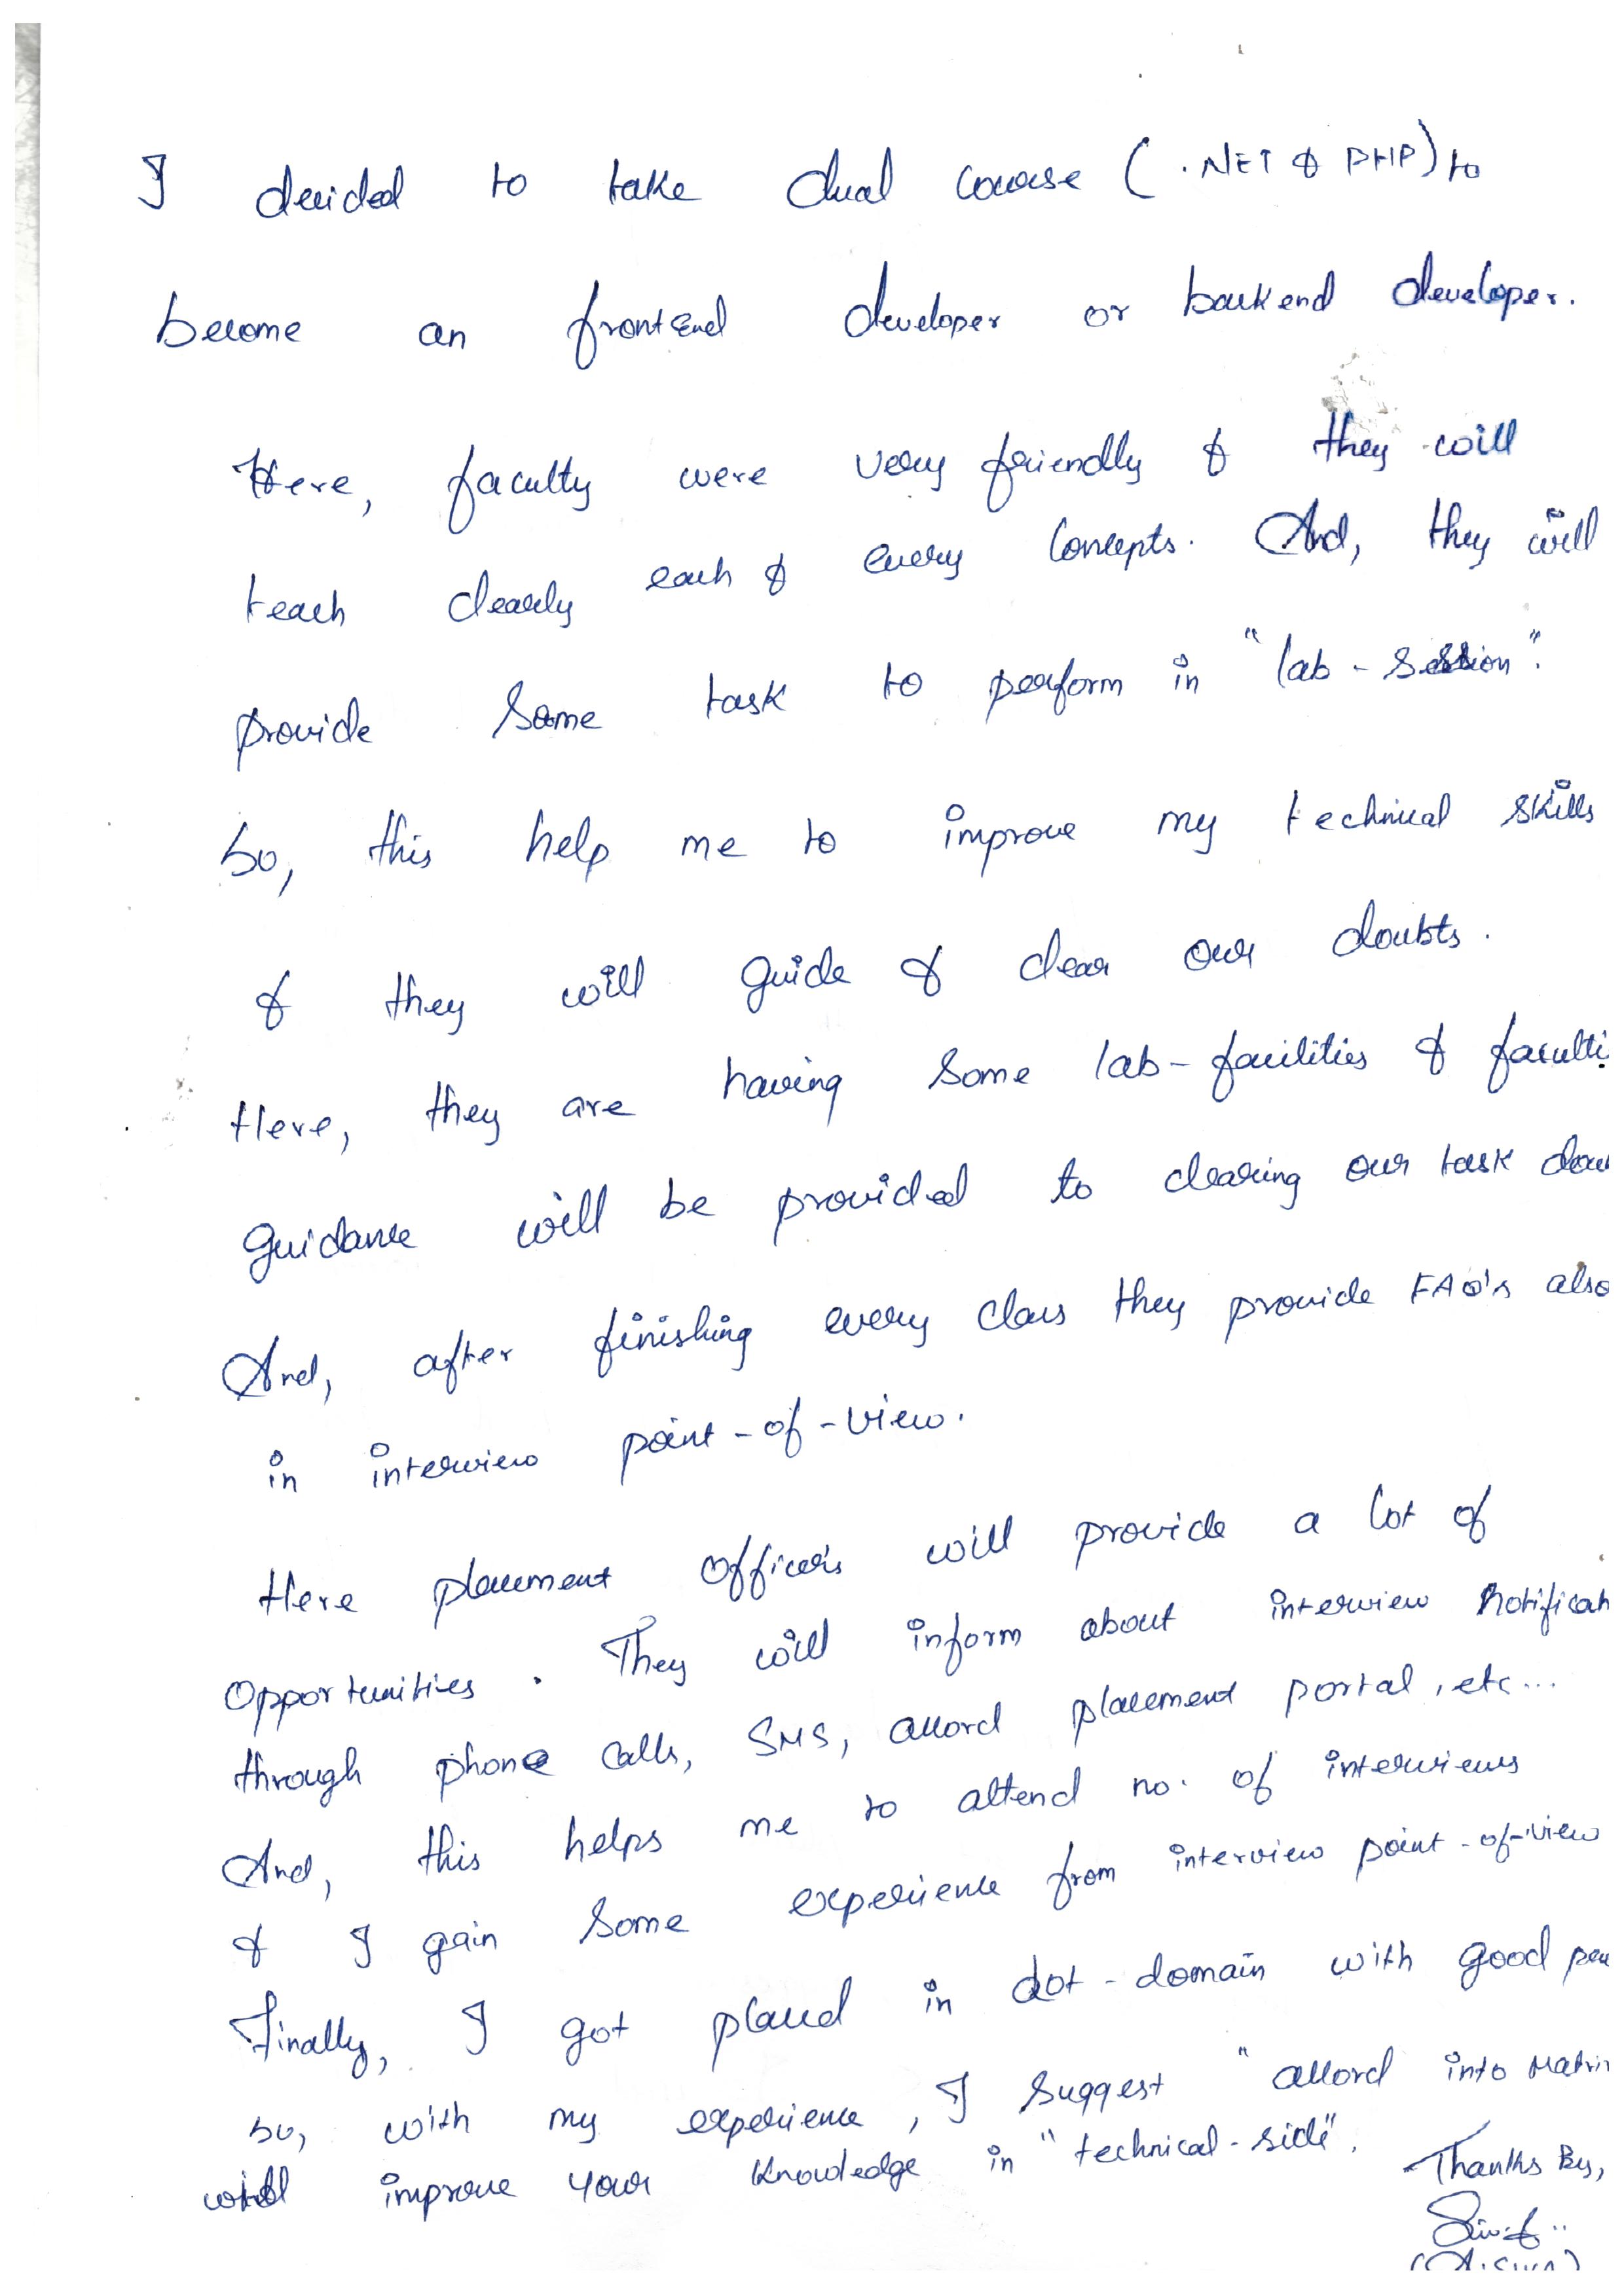 I decided to take dual course (.NET & PHP) to
become an frontend developer or backend developer.
Here, faculty were very friendly & they will
teach clearly each & every concepts. And, they will
provide some task to perform in "lab - session".
So, this help me to improve my technical skills
& they will guide & clear our doubts.
Here, they are having some lab-facilities & faculti
guidance will be provided to clearing our task dou
And, after finishing every class they provide FAQ's also
in interview point-of-view.
Here placement officer's will provide a lot of
opportunities. They will inform about interview notificat
through phone calls, SMS, accord placement portal, etc...
And, this helps me to attend no. of interviews
& I gain some experience from interview point-of-view
Finally, I got placed in dot-domain with good
So, with my experience, I suggest "accord into Matrix
will improve your knowledge in "technical-side".
Thanks By,